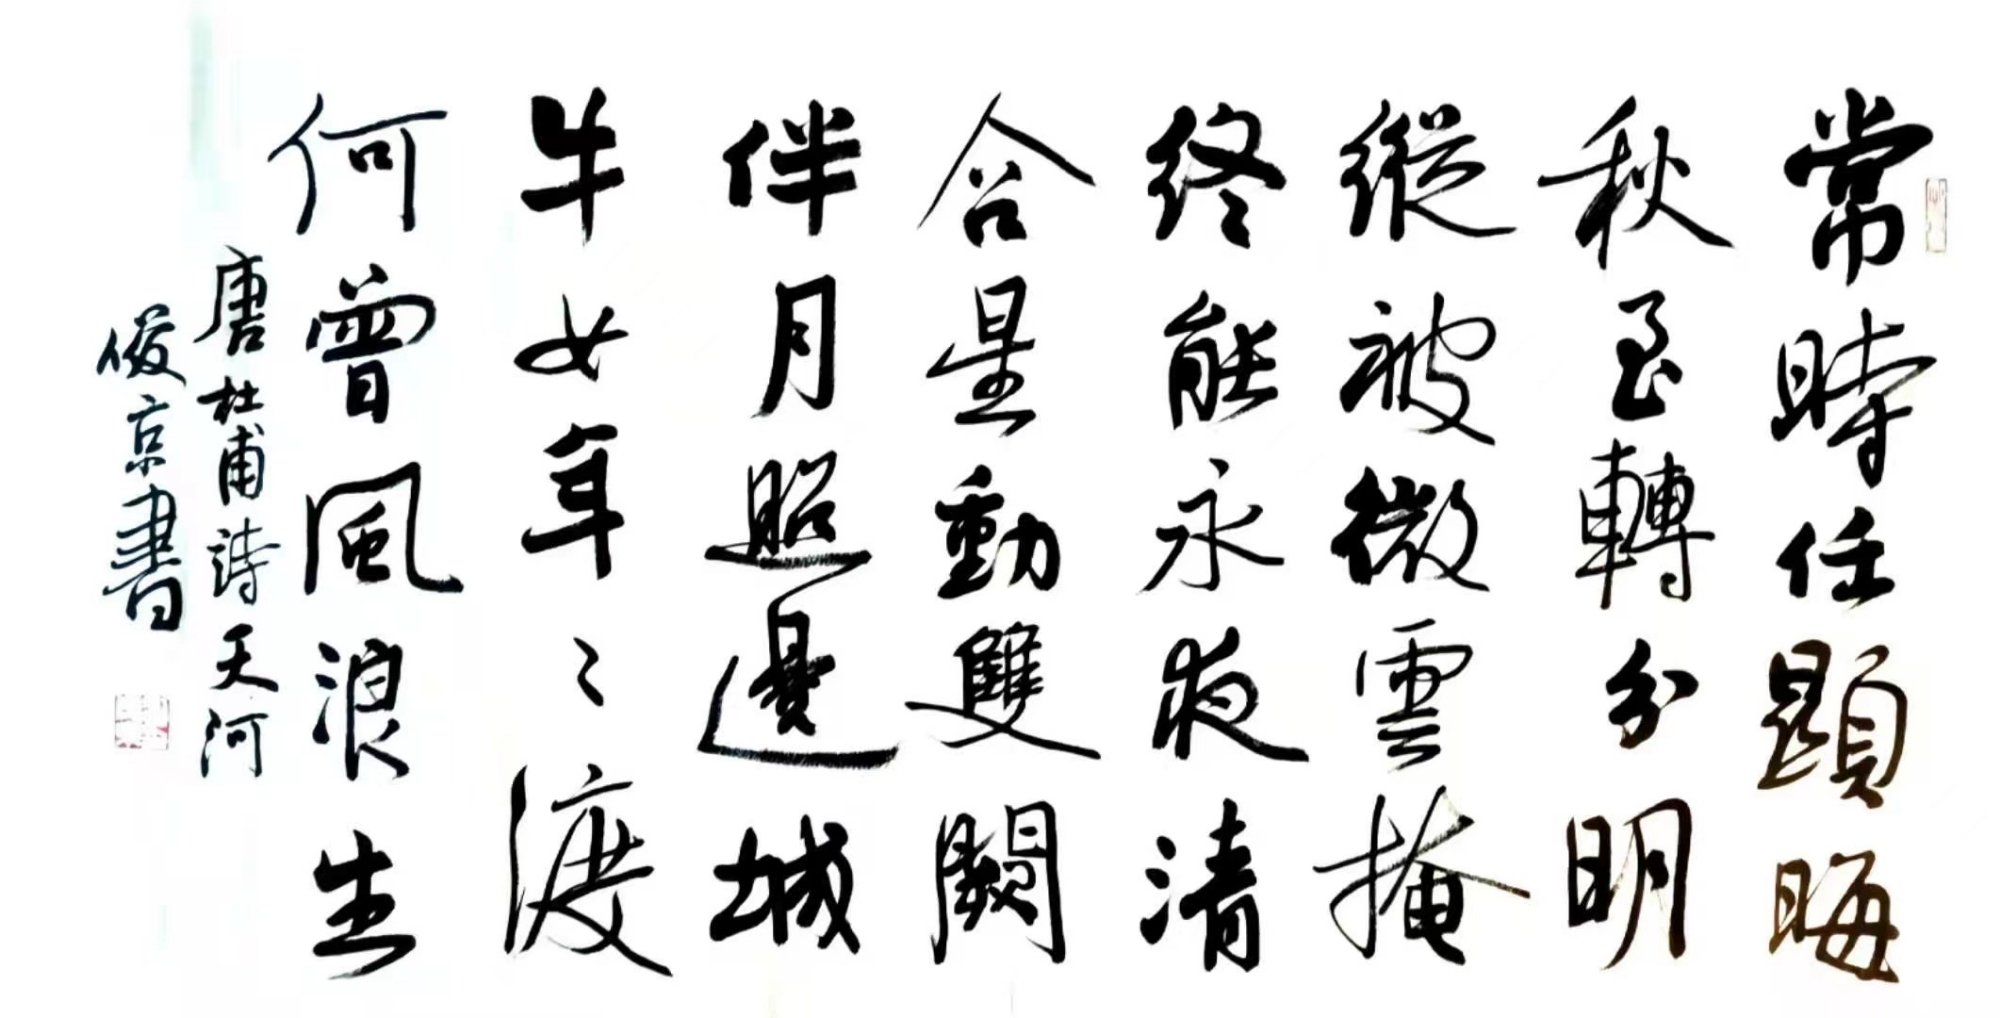 常時任顯晦
秋至轉分明
縱被微雲掩
終能永夜清
含星動雙闕
伴月照邊城
牛女年〻渡
何曾風浪生
唐杜甫詩天河
俊京書